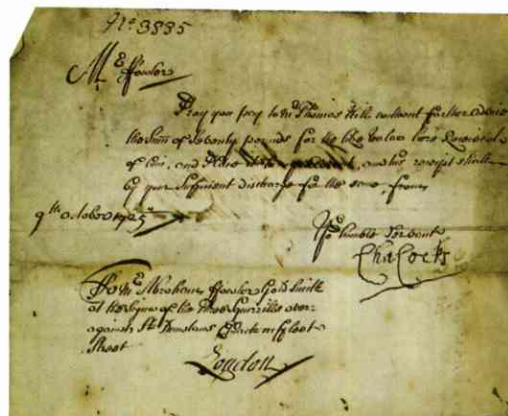 No 3885
Mr Fowler
Pray you pay to Mr Thomas Hill without further advice
the Sum of Seventy pounds for the like value here Received
of him, and and his receipt shall
by your Sufficient discharge for the same from
9th October 1725
Yor humble Servant
Cha Cocks
To Mr Abraham Fowler Goldsmith
at the Signe of the three Squirrills over
against St Dunstans Church in ffleet
Street
London